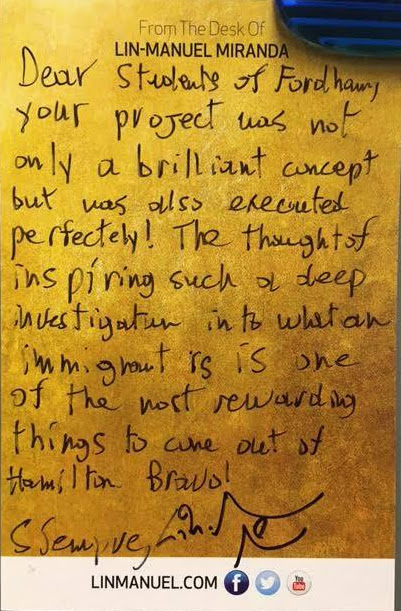 From The Desk Of
LIN-MANUEL MIRANDA
Dear Students of Fordham,
your project was not
only a brilliant concept
but was also executed
perfectely! The thought of
inspiring such a deep
investigation into what an
immigrant is is one
of the most rewarding
things to come out of
Hamilton Bravo!
Siempre,
LINMANUEL.COM
You